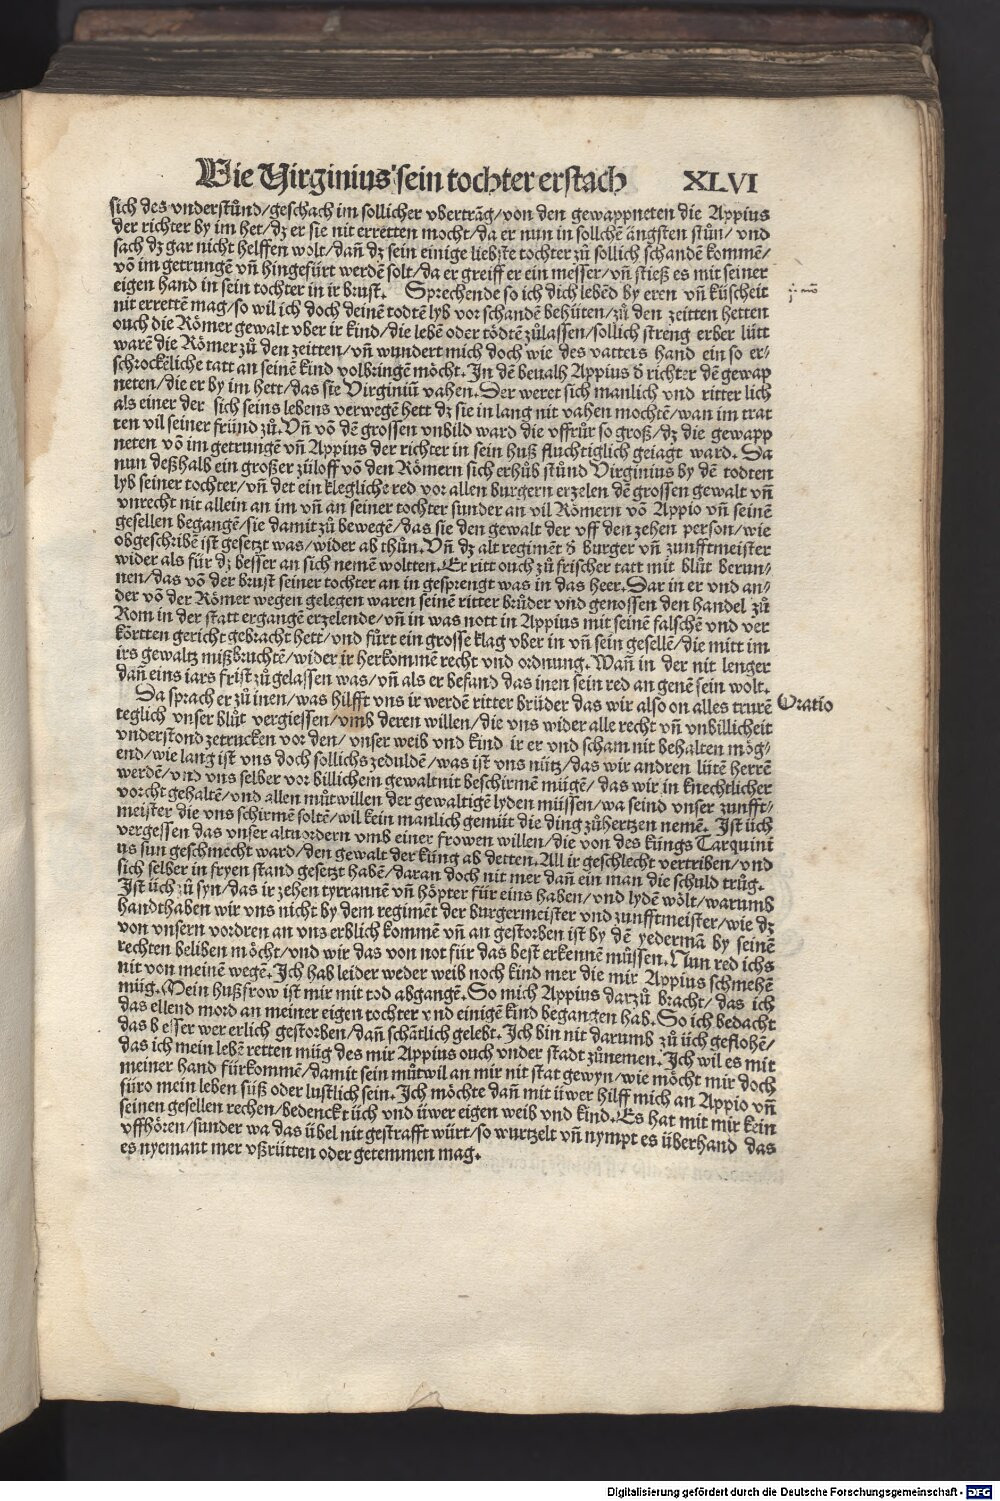 Wie Virginius sein tochter erstach XLVI
sich des vnderstůnd/geschach im sollicher vbertrãg/von den gewappneten die Appius
der richter by im het/dz er sie nit erretten mocht/da er nun in sollchẽ ängsten stůn/ vnd
sach dz gar nicht helffen wolt/dañ dz sein einige liebste tochter zů sollich schandẽ kommẽ/
võ im getrungẽ vñ hingefürt werdẽ solt/da er greiff er ein messer/vñ stieß es mit seiner
eigen hand in sein tochter in ir brust. Sprechende so ich dich lebẽd by eren vñ küscheit
nit errettẽ mag/so wil ich doch deinẽ todtẽ lyb vor schandẽ behüten/zů den zeitten hetten
ouch die Römer gewalt vber ir kind/die lebẽ oder tödtẽ zůlassen/sollich streng erber lütt
warẽ die Römer zů den zeitten/vñ wundert mich doch wie des vatters hand ein so er-
schrockẽliche tatt an seinẽ kind volbringẽ möcht. In dẽ beualh Appius ð richter dẽ gewap
neten/die er by im hett/das sie Virginiũ vahen. Der weret sich manlich vnd ritter lich
als einer der sich seins lebens verwegẽ hett dz sie in lang nit vahen mochtẽ/wan im trat
ten vil seiner fründ zů. Vñ võ dẽ grossen vnbild ward die vffrůr so groß/dz die gewapp
neten võ im getrungẽ vñ Appius der richter in sein huß fluchtiglich geiagt ward. Da
nun deßhalb ein großer zůloff võ den Römern sich erhůb stůnd Virginius by dẽ todten
lyb seiner tochter/vñ det ein klegliche red vor allen burgern erzelen dẽ grossen gewalt vñ
vnrecht nit allein an im vñ an seiner tochter sunder an vil Römern võ Appio vñ seinẽ
gesellen begangẽ/sie damit zů bewegẽ/das sie den gewalt der vff den zehen person/wie
obgeschribẽ ist gesetzt was/wider ab thůn. Vñ dz alt regimẽt ð burger vñ zunfftmeister
wider als für dz besser an sich nemẽ woltten. Er ritt ouch zů frischer tatt mit blůt berun-
nen/das võ der brust seiner tochter an in gesprengt was in das heer. Dar in er vnd an-
der võ der Römer wegen gelegen waren seinẽ ritter brůder vnd genossen den handel zů
Rom in der statt ergangẽ erzelende/vñ in was nott in Appius mit seinẽ falschẽ vnd ver
kõrtten gericht gebracht hett/vnd fürt ein grosse klag vber in vñ sein gesellẽ/die mitt im
irs gewaltz mißbruchtẽ/wider ir herkommẽ recht vnd ordnung. Wañ in der nit lenger
dañ eins iars frist zů gelassen was/vñ als er befand das inen sein red an genẽ sein wolt.
Da sprach er zů inen/was hilfft vns ir werdẽ ritter brüder das wir also on alles trurẽ
Oratio
teglich vnser blůt vergiessen/vmb deren willen/die vns wider alle recht vñ vnbillicheit
vnderstond zetrucken vor den/ vnser weib vnd kind ir er vnd scham nit behalten mög-
end/wie lang ist vns doch sollichs zeduldẽ/was ist vns nütz/das wir andren lütẽ herrẽ
werdẽ/vnd vns selber vor billichem gewalt nit beschirmẽ mügẽ/ das wir in knechtlicher
vorcht gehaltẽ/vnd allen můtwillen der gewaltigẽ lyden müssen/wa seind vnser zunfft-
meister die vns schirmẽ soltẽ/wil kein manlich gemüt die ding zůhertzen nemẽ. Ist üch
vergessen das vnser altuordern vmb einer frowen willen/die von des küngs Tarquini
us sun geschmecht ward/den gewalt der küng ab detten. All ir geschlecht vertriben/vnd
sich selber in fryen stand gesetzt habẽ/daran doch nit mer dañ ein man die schuld trůg.
Ist üch zů syn/das ir zehen tyrrannẽ vñ höpter für eins haben/vnd lydẽ wölt/warumb
handthaben wir vns nicht by dem regimẽt der burgermeister vnd zunfftmeister/wie dz
von vnsern vordren an vns erblich kommẽ vñ an gestorben ist by dẽ yedermã by seinẽ
rechten beliben möcht/vnd wir das von not für das best erkennẽ můssen. Nun red ichs
nit von meinẽ wegẽ. Ich hab leider weder weib noch kind mer die mir Appius schmehẽ
müg. Mein hußfrow ist mir mit tod abgangẽ. So mich Appius darzů bracht/ das ich
das ellend mord an meiner eigen tochter vnd einigẽ kind begangen hab. So ich bedacht
das besser wer erlich gestorben/dañ schãtlich gelebt. Ich bin nit darumb zů üch geflohẽ/
das ich mein lebẽ retten müg des mir Appius ouch vnder stadt zůnemen. Ich wil es mit
meiner hand fürkommẽ/damit sein můtwil an mir nit stat gewyn/wie möcht mir doch
füro mein leben süß oder lustlich sein. Ich möchte dañ mit üwer hilff mich an Appio vñ
seinen gesellen rechen/bedenckt üch vnd üwer eigen weib vnd kind. Es hat mit mir kein
vffhören/sunder wa das übel nit gestrafft würt/so wurtzelt vñ nympt es überhand das
es nyemant mer vßrütten oder getemmen mag.
Digitalisierung gefördert durch die Deutsche Forschungsgemeinschaft - DFG